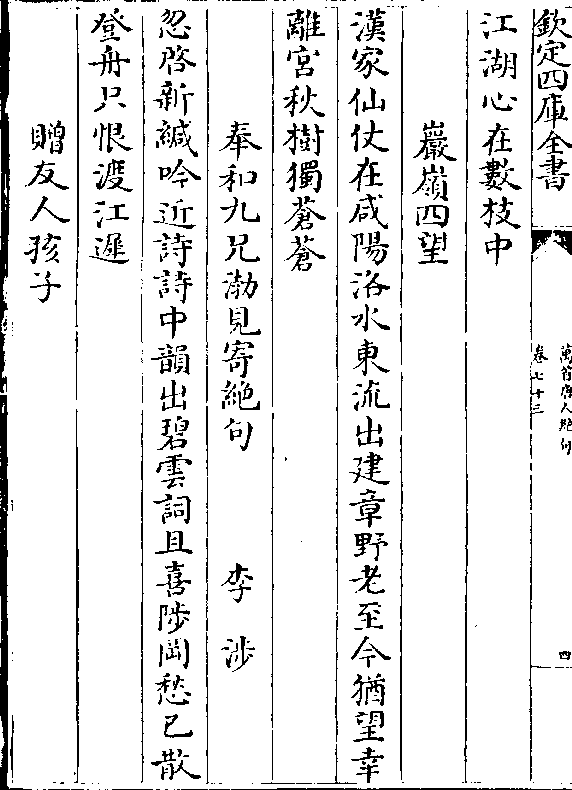 欽定四庫全書
萬首唐人絶句
卷七十三
四
江湖心在數枝中
巖嶺四望
漢家仙仗在咸陽洛水東流出建章野老至今猶望幸
離宮秋樹獨蒼蒼
奉和九兄渤見寄絶句　李涉
忽啓新緘吟近詩詩中韻出碧雲詞且喜陟岡愁已散
登舟只恨渡江遲
贈友人孩子